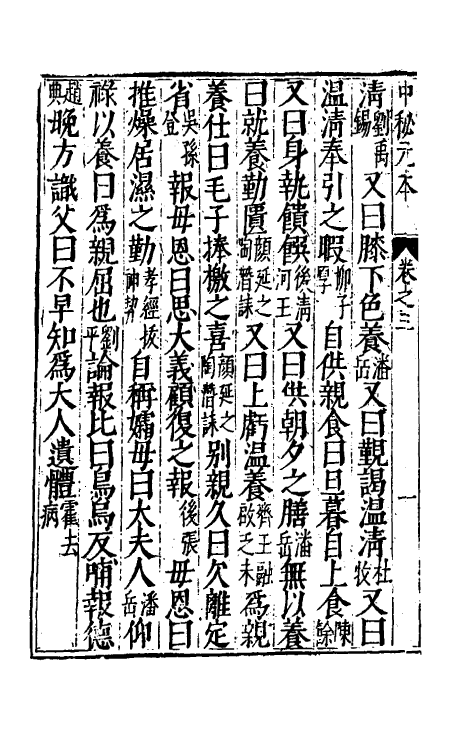 中秘元本 卷之三 一
清劉禹錫又曰膝下色養潘岳又曰覲謁温清杜牧又曰
温清奉引之暇柳子厚自供親食曰旦暮自上食陳餘
又曰身執饋饌後清河王又曰供朝夕之膳潘岳無以養
曰就養勤匱顔延之陶潜誄又曰上虧温養齊王融啟乏未爲親
養仕曰毛子捧檄之喜顔延之陶潜誄别親久曰久離定
省吳孫登報母恩曰思大義顧復之報後張母恩曰
推燥居濕之勤孝經援神契自稱孀母曰太夫人潘岳仰
祿以養曰爲親屈也劉平論報比曰烏烏反哺報德
趙典晚方識父曰不早知爲大人遺體霍去病